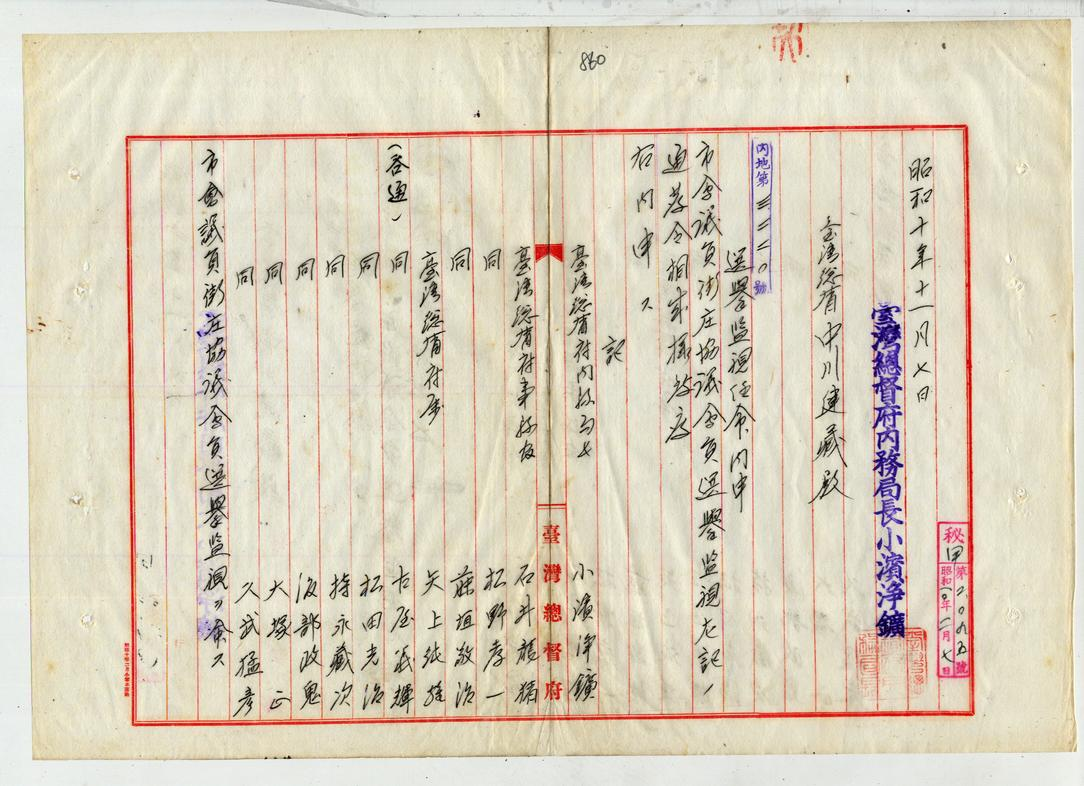 880
秘甲第二〇九五號
昭和一〇年一一月七日
昭和十年十一月七日
臺灣總督府內務局長小濱淨鑛
臺湾総督中川健蔵殿
內地第三三二〇號
選擧監視任命內申
市会議員街庄協議会員選擧監視左記ノ
通発令相成様致度
右內申ス
記
臺湾総督府內務局長 小濱淨鑛
臺灣總督府
臺湾総督府事務官 石井龍猪
同 松野孝一
同 藤垣敬治
臺湾総督府属 矢上純雄
(各通) 同 古屋義輝
同 松田光治
同 持永藏次
同 阪部政鬼
同 大塚正
同 久武猛彦
市會議員街庄協議会員選擧監視ヲ命ス